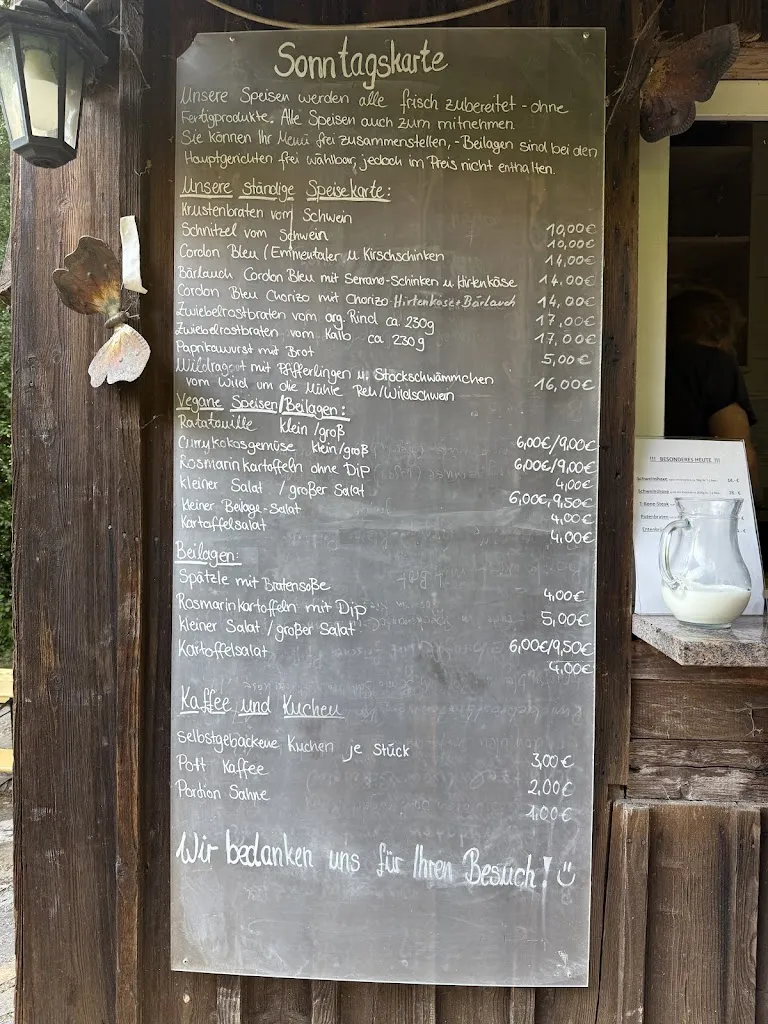 Sonntagskarte
Unsere Speisen werden alle frisch zubereitet - ohne
Fertigprodukte. Alle Speisen auch zum mitnehmen.
Sie können Ihr Menü frei zusammenstellen, - Beilagen sind bei den
Hauptgerichten frei wählbar, jedoch im Preis nicht enthalten.
Unsere ständige Speisekarte:
Krustenbraten vom Schwein 10,00€
Schnitzel vom Schwein 10,00€
Cordon Bleu (Emmentaler u. Kirschschinken 14,00€
Bärlauch Cordon Bleu mit Serrano-Schinken u. Hirtenkäse 14,00€
Cordon Bleu Chorizo mit Chorizo Hirtenkäse+Bärlauch 14,00€
Zwiebelrostbraten vom arg. Rind ca. 230g 17,00€
Zwiebelrostbraten vom Kalb ca 230g 17,00€
Paprikawurst mit Brot 5,00€
Wildragout mit Pfifferlingen u. Stockschwämmchen 16,00€
vom Wild um die Mühle Reh/Wildschwein
Vegane Speisen/Beilagen:
Ratatouille klein/groß 6,00€/9,00€
Currykokosgemüse klein/groß 6,00€/9,00€
Rosmarinkartoffeln ohne Dip 4,00€
kleiner Salat / großer Salat 6,00€, 9,50€
kleiner Beilage-Salat 4,00€
Kartoffelsalat 4,00€
Beilagen:
Spätzle mit Bratensoße 4,00€
Rosmarinkartoffeln mit Dip 5,00€
kleiner Salat / großer Salat 6,00€/9,50€
Kartoffelsalat 4,00€
Kaffee und Kuchen
selbstgebackene Kuchen je Stück 3,00€
Pott Kaffee 2,00€
Portion Sahne 1,00€
Wir bedanken uns für Ihren Besuch!
!!! BESONDERES HEUTE !!!
Schweinshaxe
Schweinshaxe
T-Bone Steak